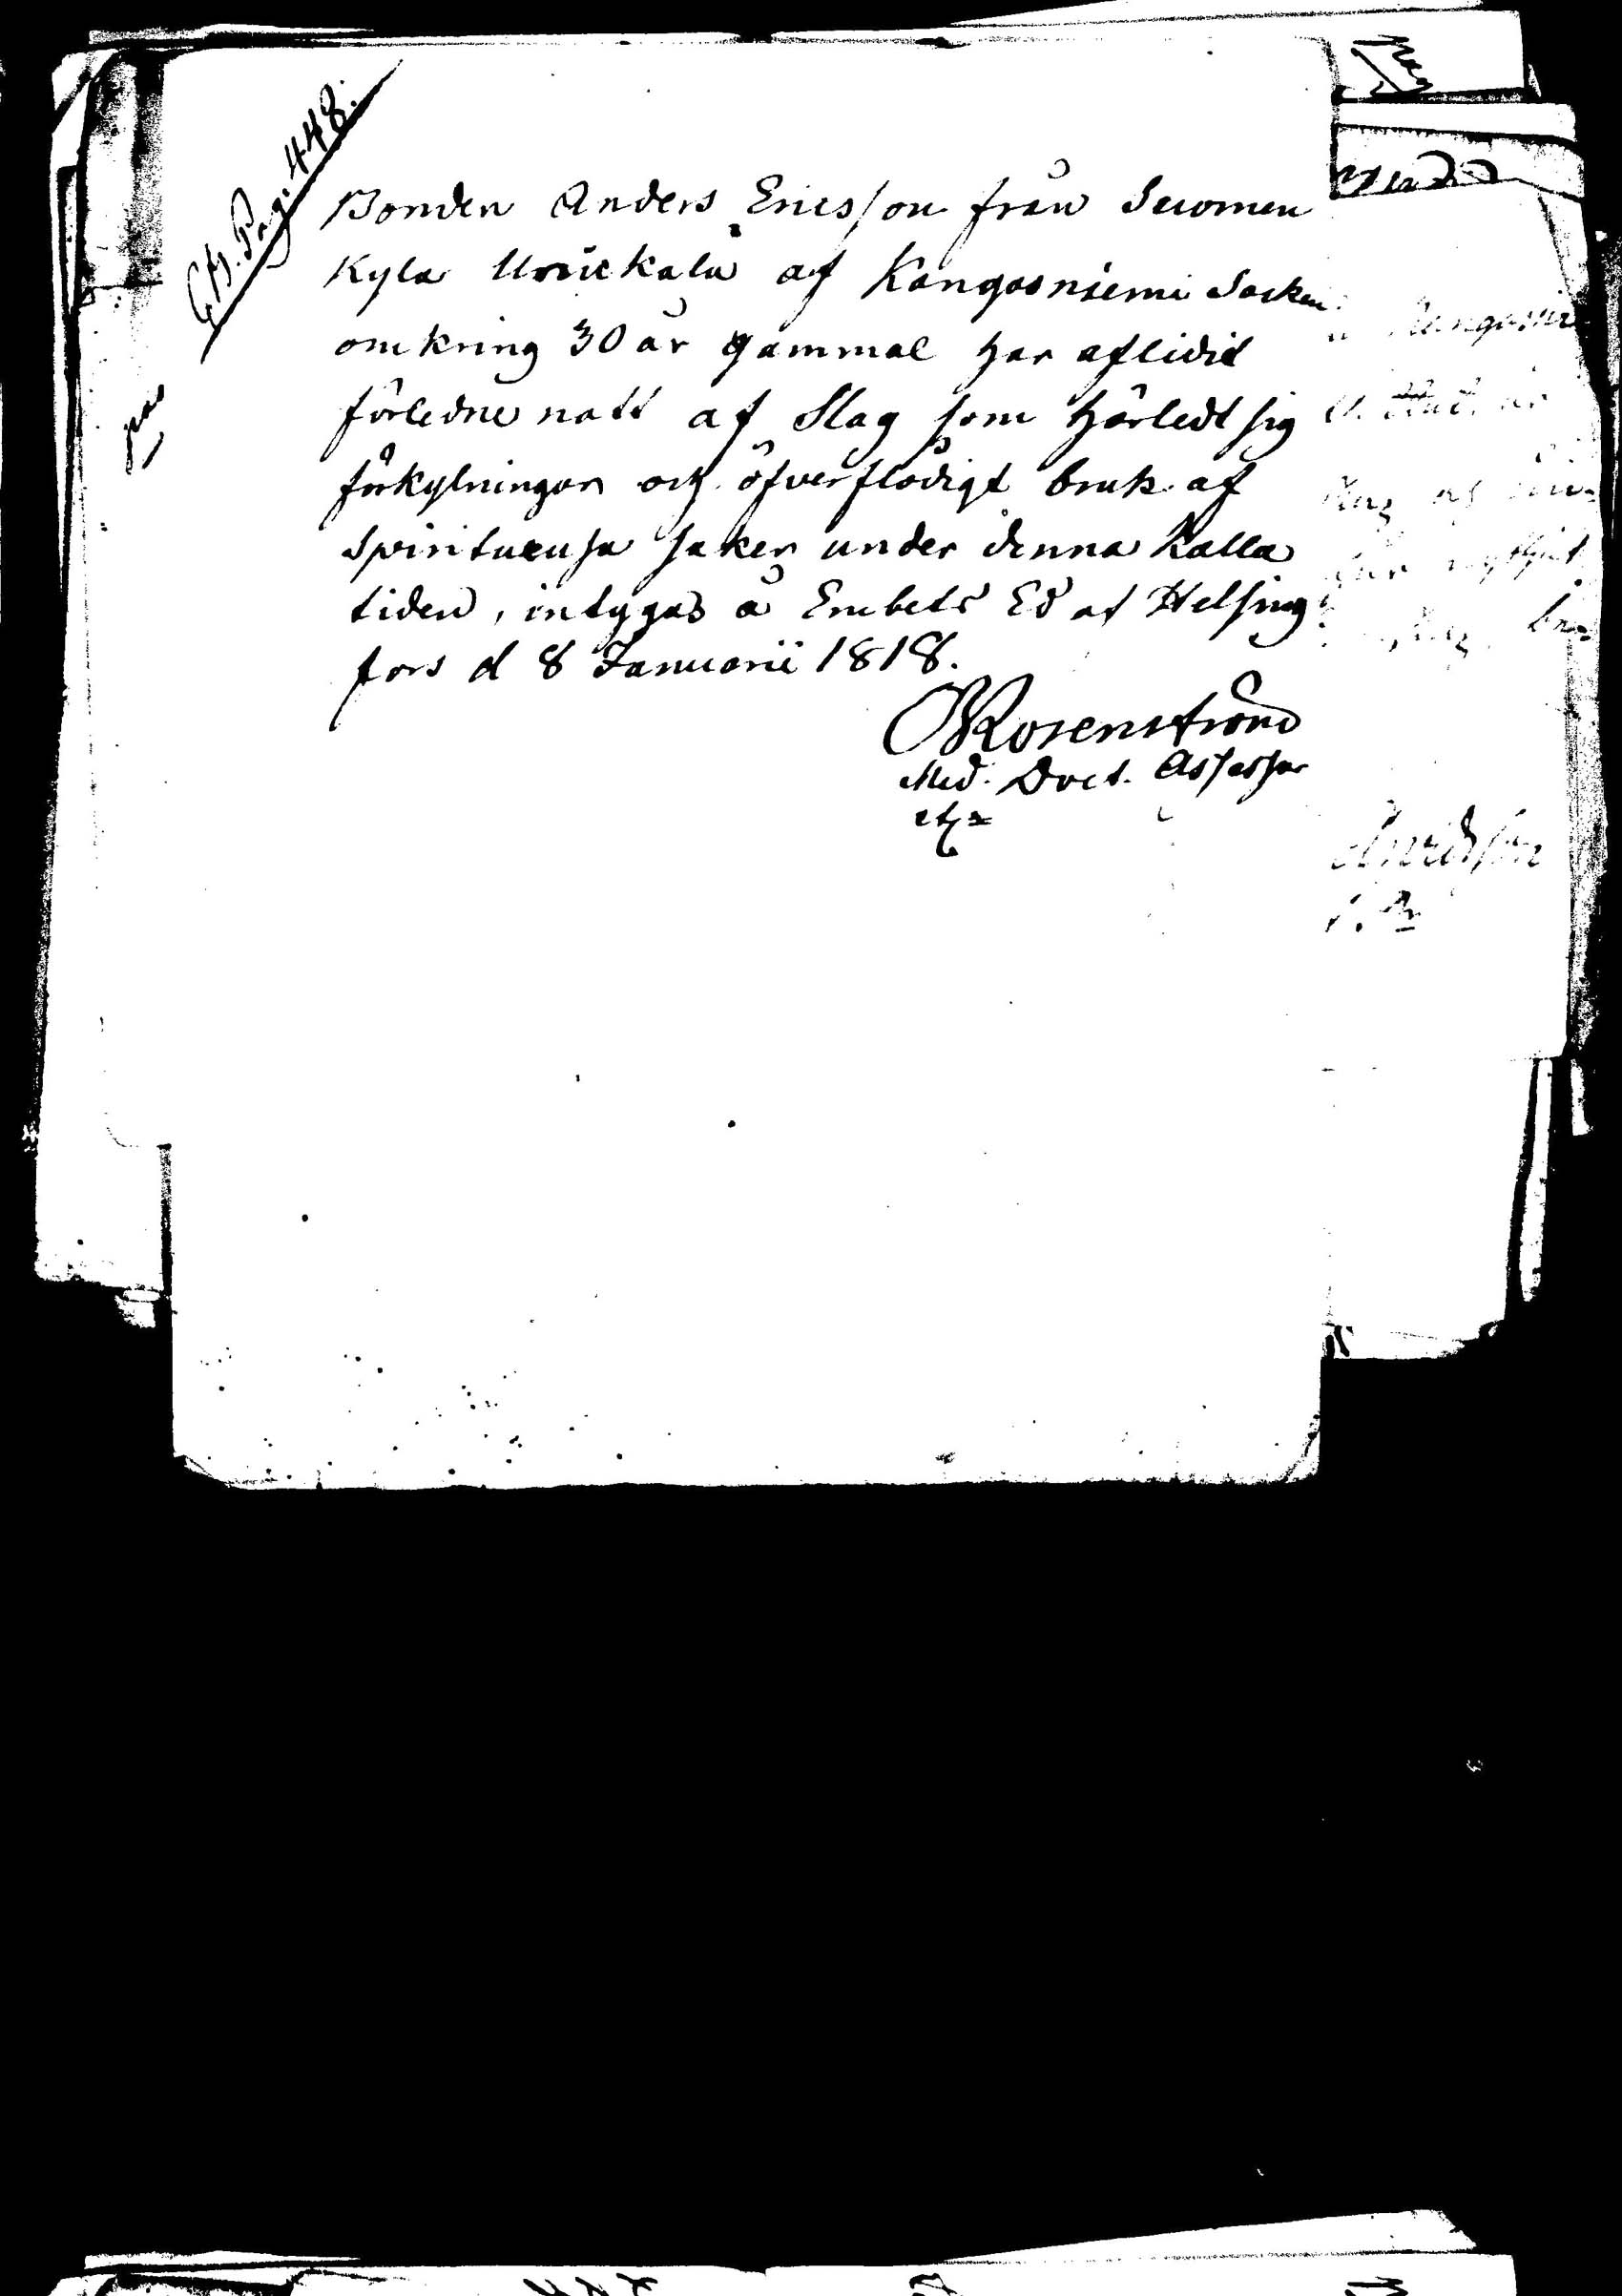 Pag: 448.
Bonden Anders Ericsson från Suomen
Kyla af Kangasniemi Socken
omkring 30 år gammal har aflidit
förledne natt af Slag som härledt sig
förkylningar och öfverflödigt bruk af
spiritueusa saker under denna kalla
tiden, intygas å Embets Ed af Helsing
fors d 8 Januarii 1818.
Rosenström
Med. Doct. Assessor